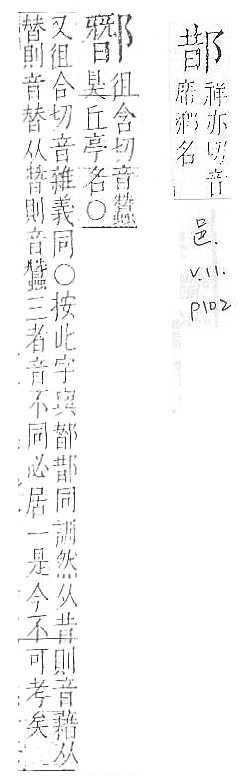 祥亦切音
席鄉名
邑.
V.11.
P102
徂含切音蠶
丘亭名○
又徂合切音雜義同○按此字與同訓然从昔則音藉从
替則音替从朁則音蠶三者音不同必居一是今不可考矣